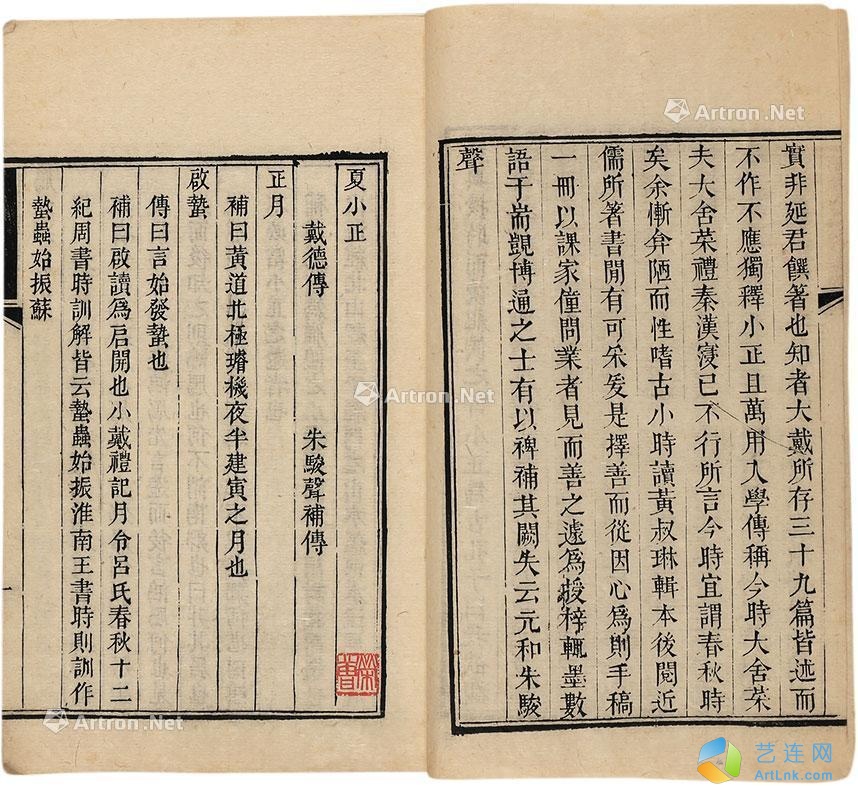 實非延君饌箸也知者大戴所存三十九篇皆述而
不作不應獨釋小正且萬用入學傳稱今時大舍菜
夫大舍菜禮秦漢寖已不行所言今時宜謂春秋時
矣余慚弇陋而性嗜古小時讀黃叔琳輯本後閱近
儒所箸書閒有可采爰是擇善而從因心爲則手稿
一冊以課家僮問業者見而善之遽爲授梓輒墨數
語于耑覬博通之士有以裨補其闕失云元和朱駿
聲
夏小正
戴德傳 朱駿聲補傳
正月
補曰黃道北極璿機夜半建寅之月也
啟蟄
傳曰言始發蟄也
補曰啟讀爲启開也小戴禮記月令呂氏春秋十二
紀周書時訓解皆云蟄蟲始振淮南王書時則訓作
蟄蟲始振蘇
一
Artron.Net
Artron.Net
Artron.Net
Artron.Net
艺连网
ArtLnk.com